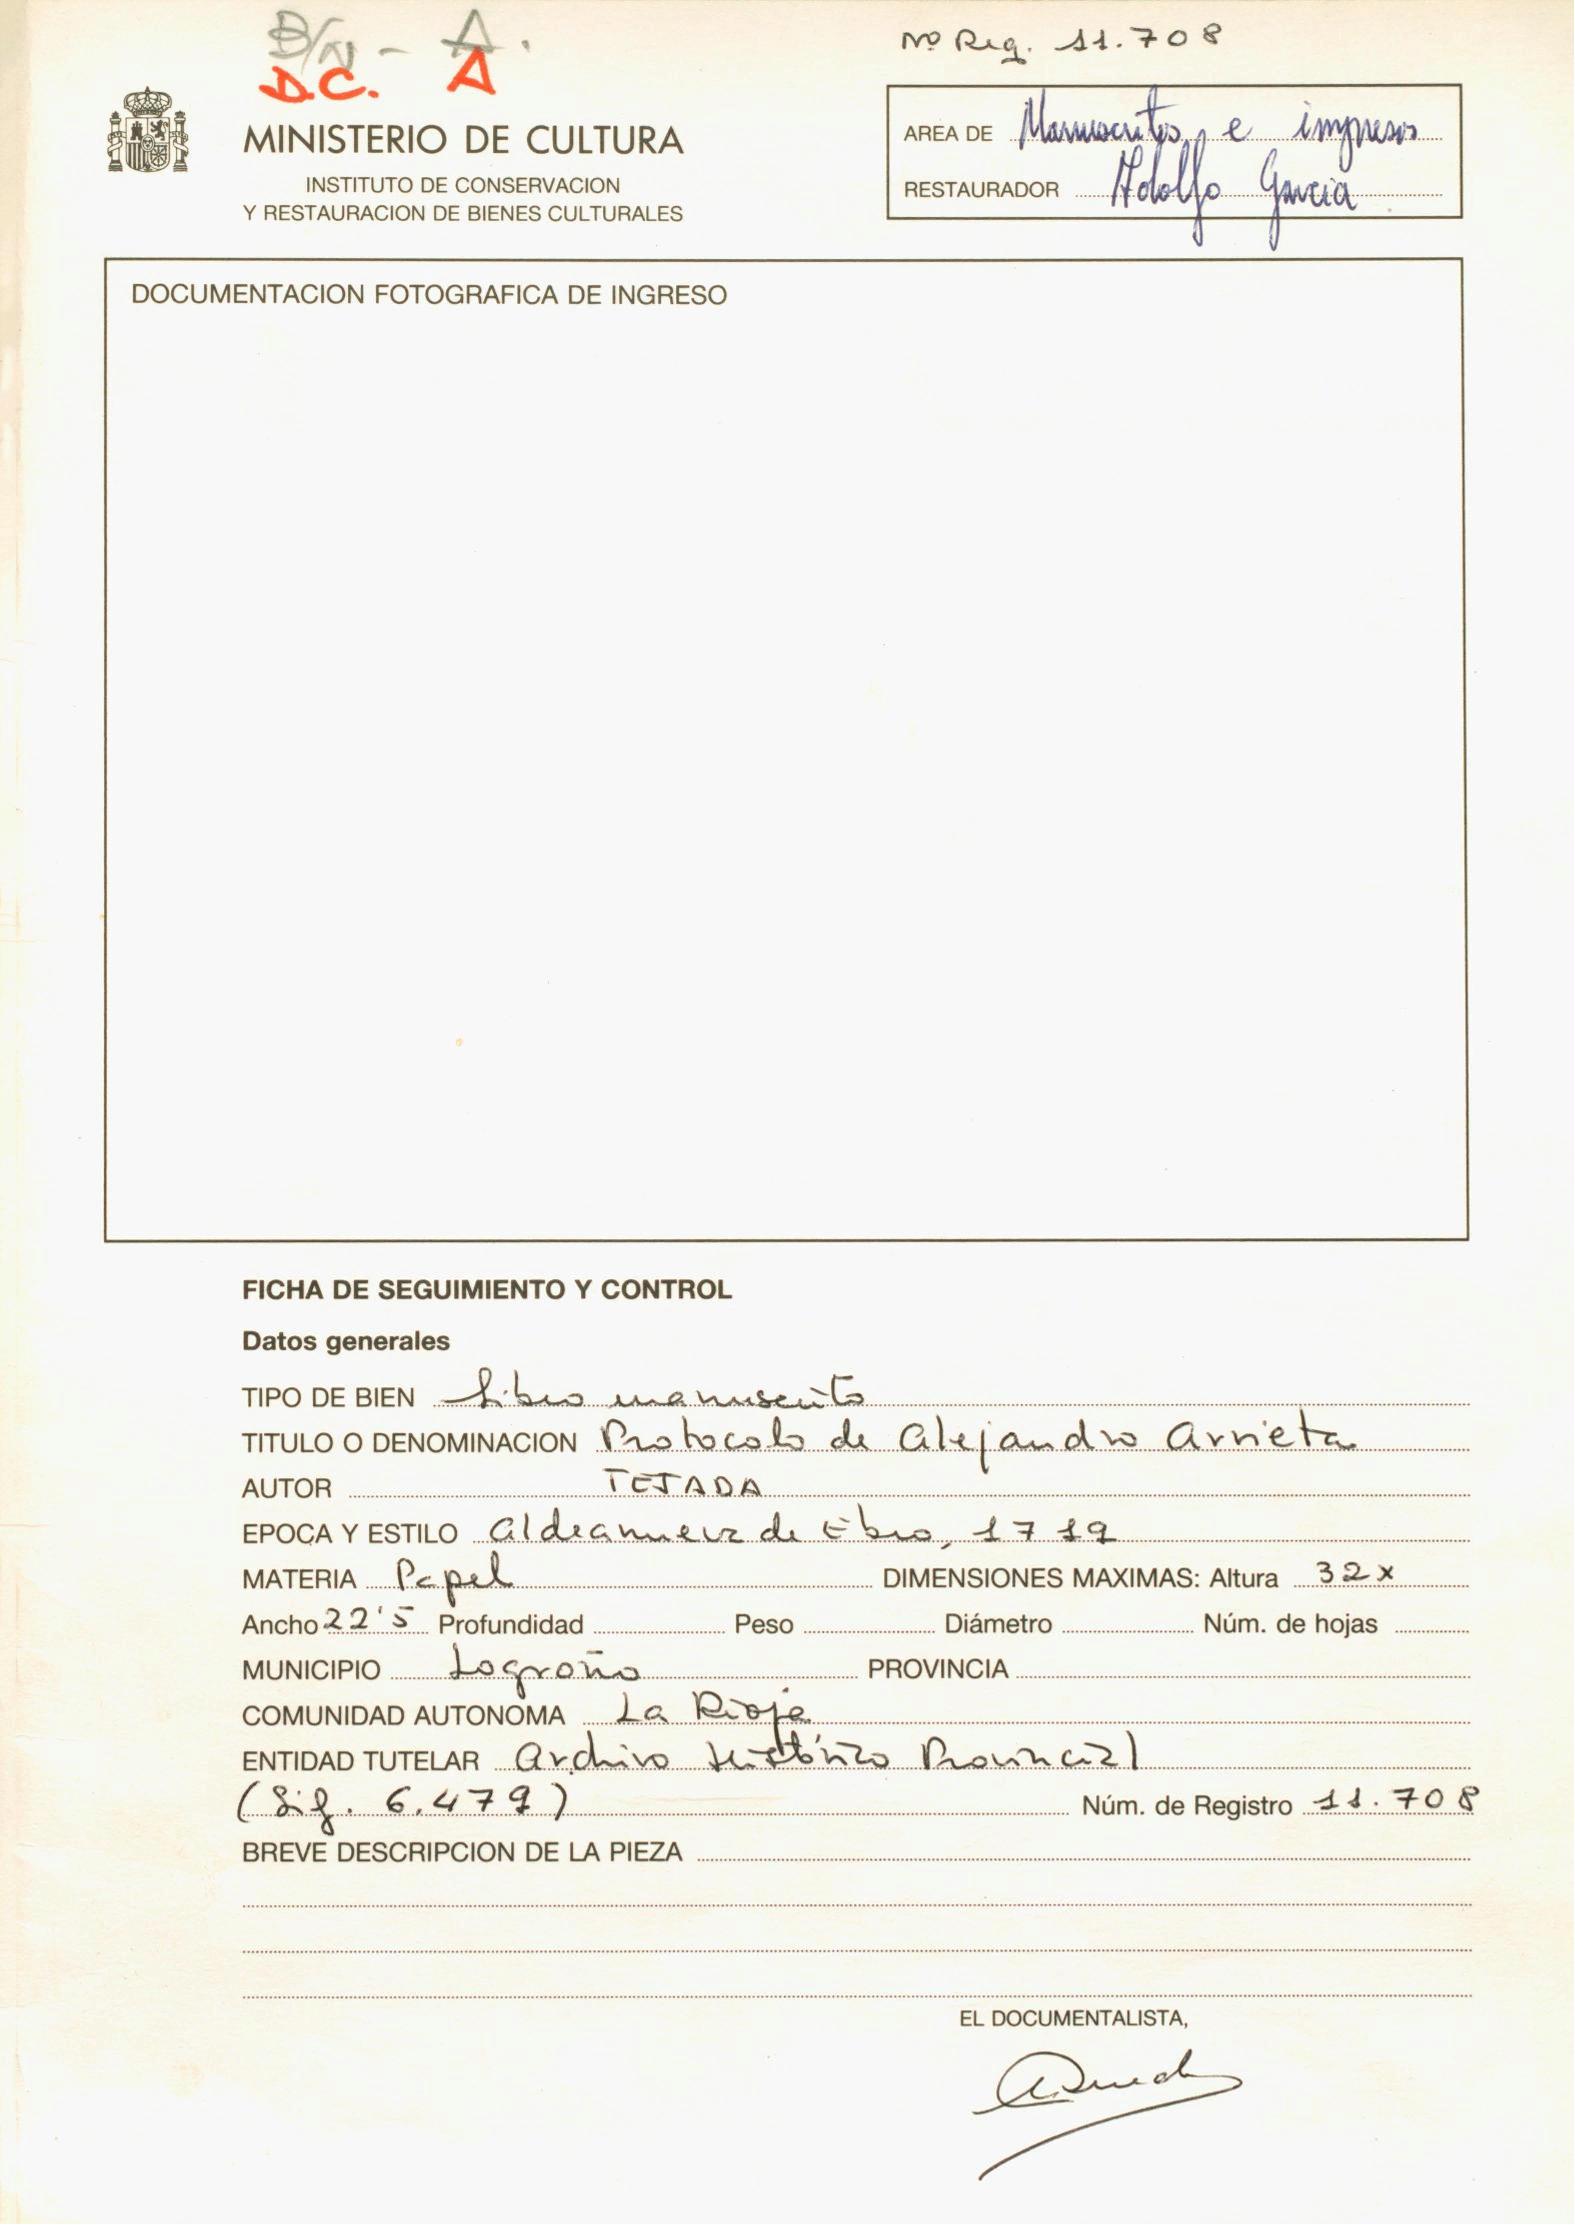 B/N - A.
D.C. A
Nº Reg. 11.708
MINISTERIO DE CULTURA
INSTITUTO DE CONSERVACION
Y RESTAURACION DE BIENES CULTURALES
AREA DE Manuscritos e impresos
RESTAURADOR Adolfo García
DOCUMENTACION FOTOGRAFICA DE INGRESO
FICHA DE SEGUIMIENTO Y CONTROL
Datos generales
TIPO DE BIEN Libro manuscrito
TITULO O DENOMINACION Protocolo de Alejandro Arrieta
AUTOR TEJADA
EPOCA Y ESTILO Aldeanueva de Ebro, 1719
MATERIA Papel DIMENSIONES MAXIMAS: Altura 32x
Ancho 22'5 Profundidad Peso Diámetro Núm. de hojas
MUNICIPIO Logroño PROVINCIA
COMUNIDAD AUTONOMA La Rioja
ENTIDAD TUTELAR Archivo Histórico Provincial
(Sig. 6.479) Núm. de Registro 11.708
BREVE DESCRIPCION DE LA PIEZA
EL DOCUMENTALISTA,